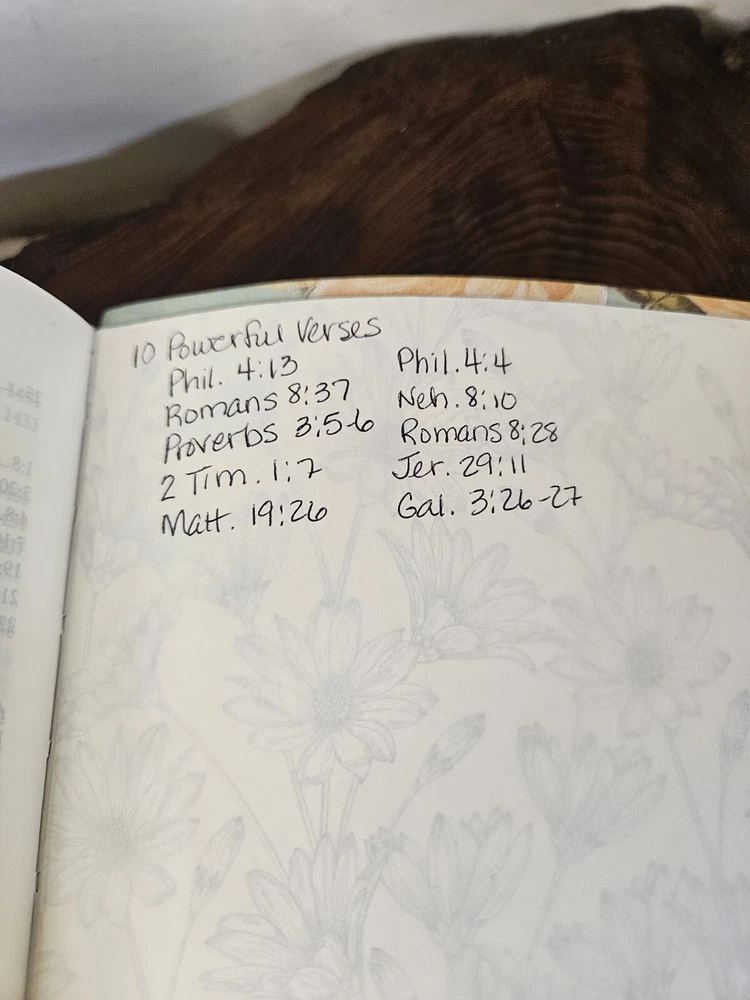 10 Powerful Verses
Phil. 4:13
Romans 8:37
Proverbs 3:5-6
2 Tim. 1:7
Matt. 19:26
Phil. 4:4
Neh. 8:10
Romans 8:28
Jer. 29:11
Gal. 3:26-27